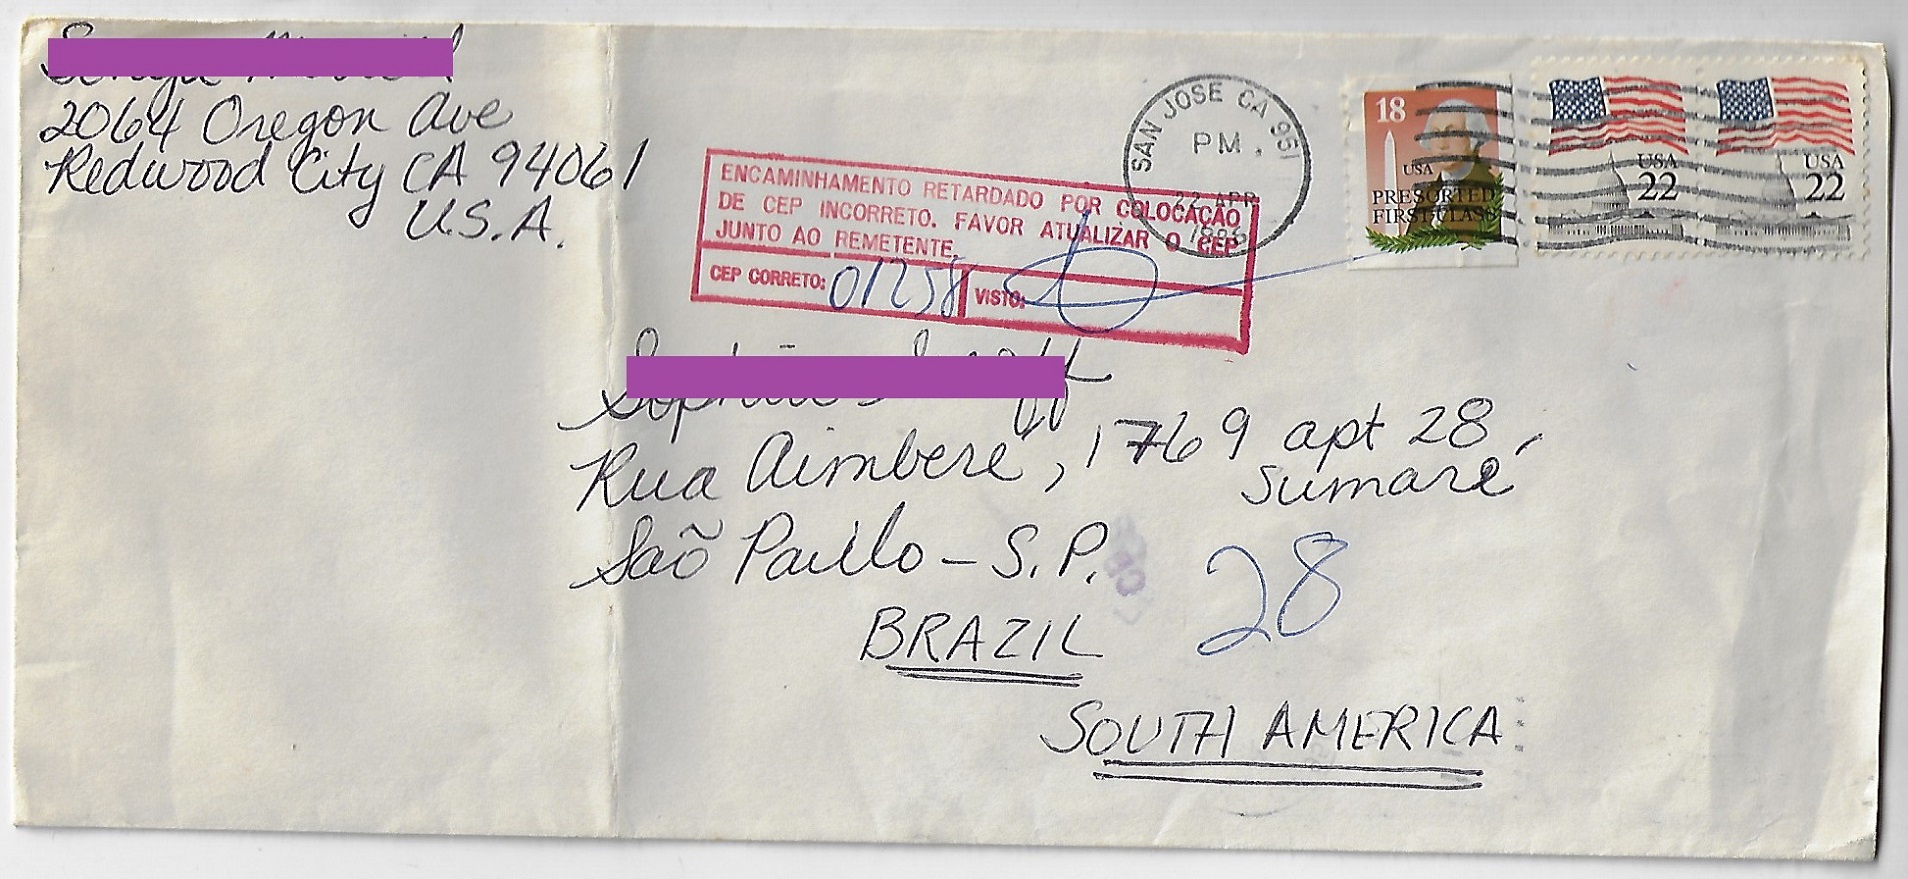 2064 Oregon Ave
Redwood City CA 94061
U.S.A.
ENCAMINHAMENTO RETARDADO POR COLOCAÇÃO
DE CEP INCORRETO. FAVOR ATUALIZAR O CEP
JUNTO AO REMETENTE.
CEP CORRETO: 01258 VISTO:
SAN JOSE CA 951
PM
22 APR
18
USA
PRESORTED
FIRST-CLASS
USA
22
USA
22
Rua Aimberé, 1769 apt 28,
Sumaré
São Paulo - S.P.
28
BRAZIL
SOUTH AMERICA